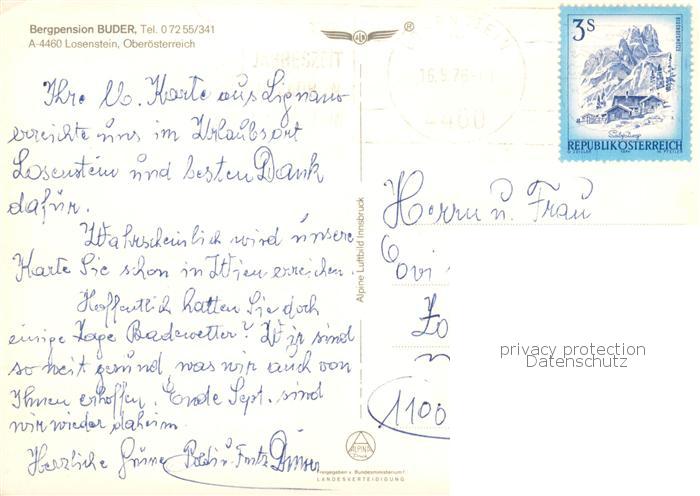 Bergpension BUDER, Tel. 0 72 55/341
A-4460 Losenstein, Oberösterreich
Ihre lb. Karte aus Lignano
erreichte uns im Urlaubsort
Losenstein und besten Dank
dafür.
Wahrscheinlich wird unsere
Karte Sie schon in Wien erreichen.
Hoffentlich hatten Sie doch
einige Tage Badewetter? Wir sind
so weit gesund, was wir auch von
Ihnen erhoffen. Ende Sept. sind
wir wieder daheim.
Herzliche Grüsse Poldi u. Fritz
Alpine Luftbild Innsbruck
®
16.9.76
4460
3 S
Salzburg
REPUBLIK ÖSTERREICH
Herrn u. Frau
1100
privacy protection
Datenschutz
ALPINA
Freigegeben v. Bundesministerium f.
LANDESVERTEIDIGUNG